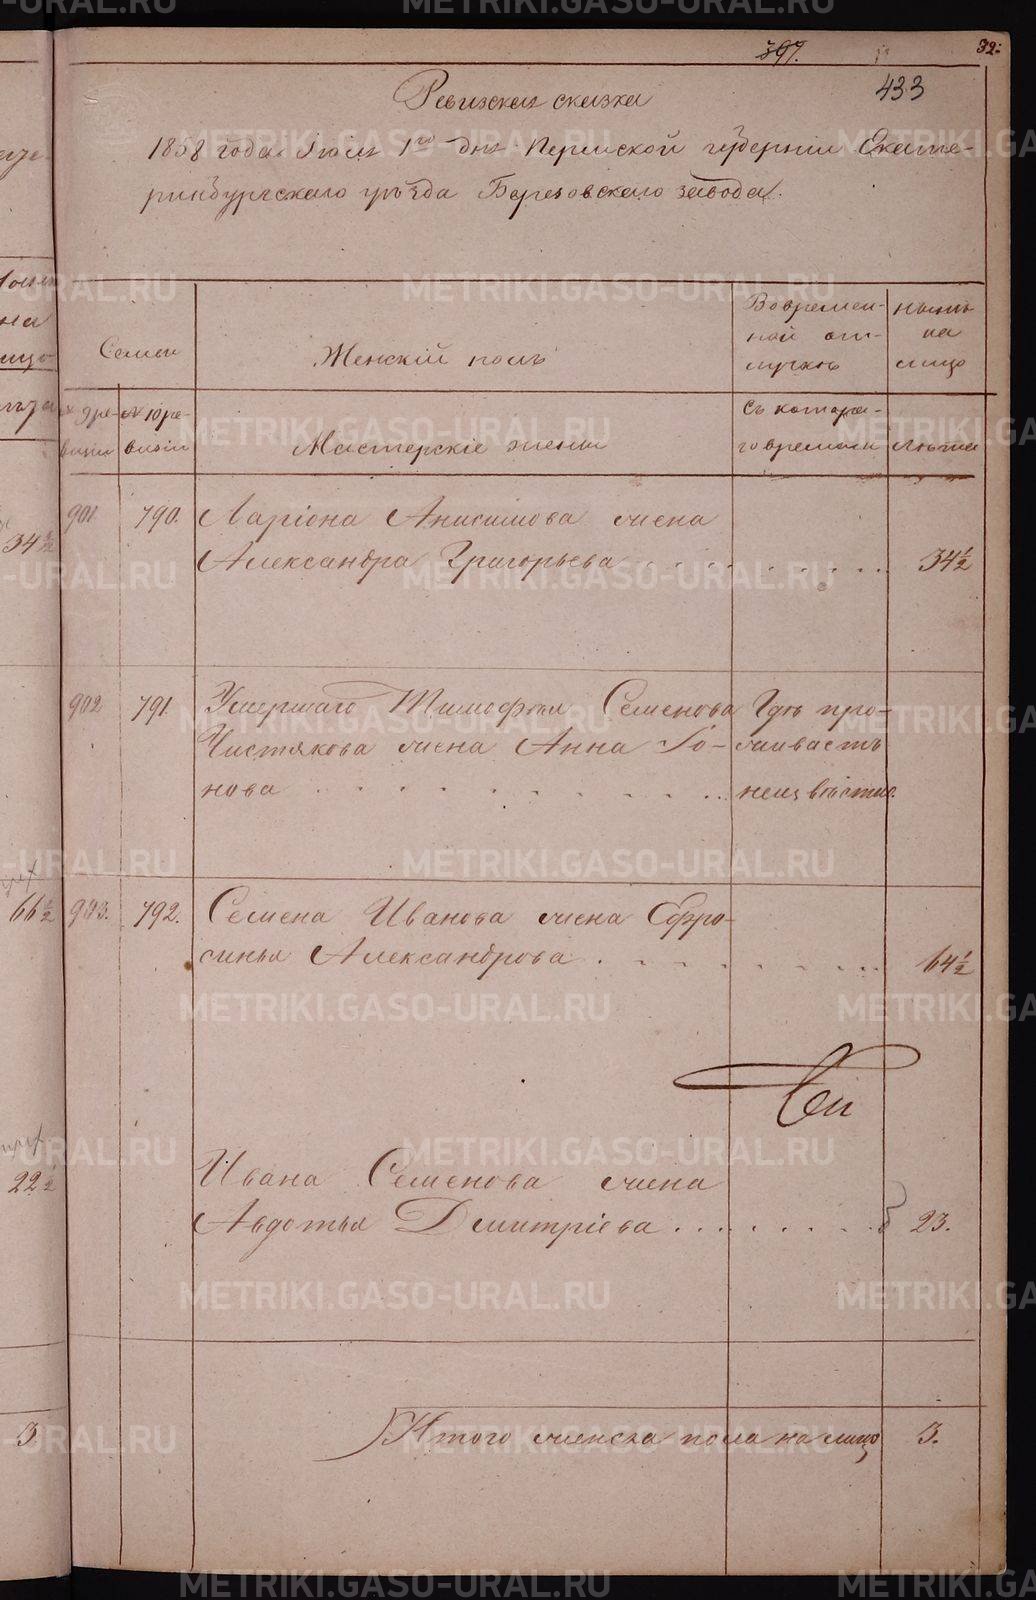 397.
32.
433
Ревизская сказка
1858 года Июня 1го дня Пермской губернiи Екате-
ринбургскаго уѣзда Березовскаго завода.
Семьи
Женскiй полъ
Во времен-
ной от-
лучкѣ
Нынѣ
на
лицо
№ 9 ре-
визiи
№ 10 ре-
визiи
Мастерскiе жены
Съ котора-
го времени
Лѣта
901 790. Ларiона Анисимова жена
Александра Григорьева 34½
902 791. Умершаго Тимофея Семенова Гдѣ про-
Чистякова жена Анна Iо- живаетъ
нова неизвѣстно.
903. 792. Семена Иванова жена Ефро-
синья Александрова 64½
Ивана Семенова жена
Авдотья Дмитрiева 23.
Итого женска пола на лицо 3.
34½
66½
22½
3
METRIKI.GASO-URAL.RU